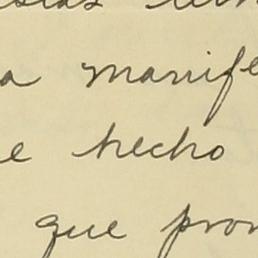 a manife
e hecho
que pron